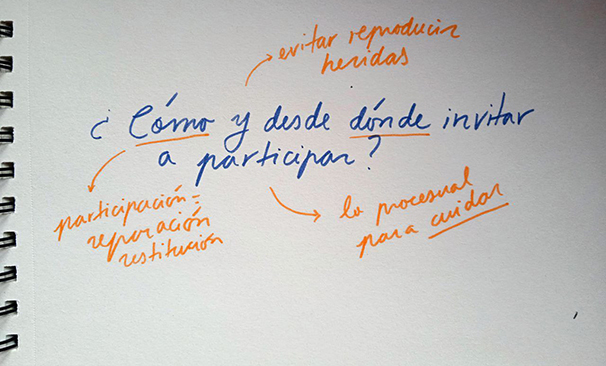 evitar reproducir
heridas
¿Cómo y desde dónde invitar
a participar?
participación =
reparación
restitución
lo procesual
para cuidar